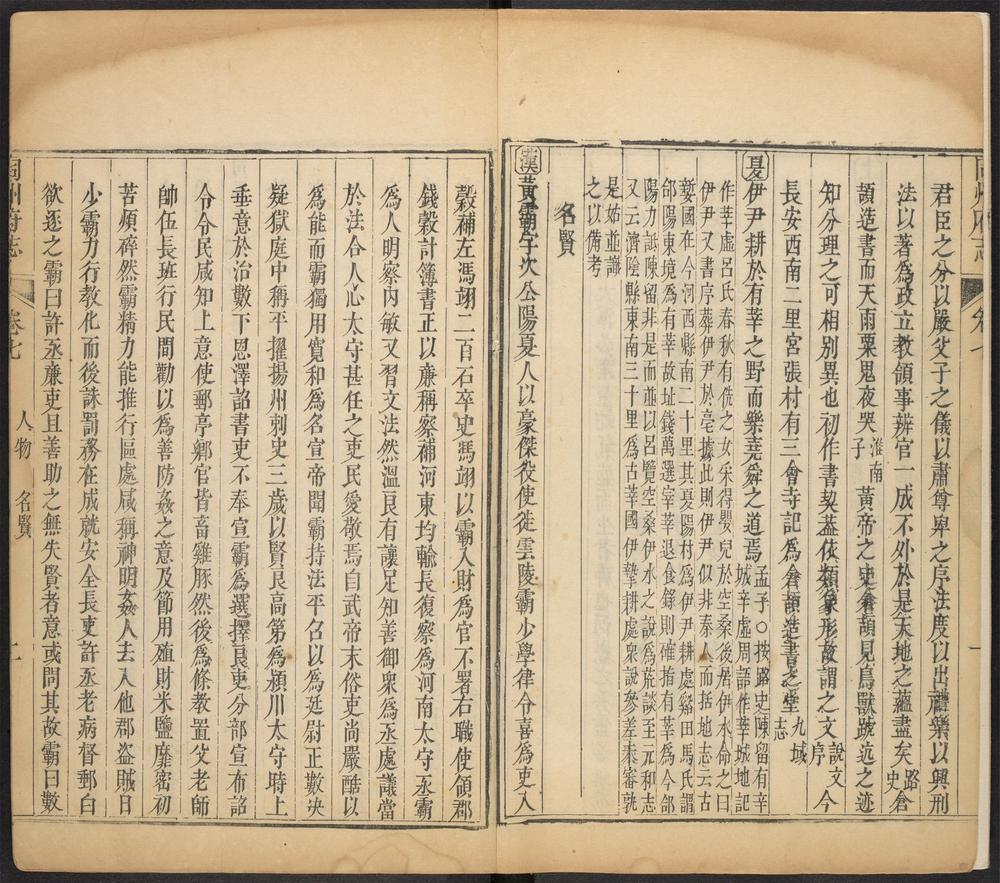 君臣之分以嚴父子之儀以肅尊卑之序法度以出禮樂以興刑
法以著為政立教領事辨官一成不外於是天地之蘊盡矣路史倉
頡造書而天雨粟鬼夜哭淮南子黃帝之史倉頡見鳥獸蹏迒之迹
知分理之可相別異也初作書契蓋依類象形故謂之文說文序今
長安西南二里宮張村有三會寺記為倉頡造書之堂九域志
夏伊尹耕於有莘之野而樂堯舜之道焉孟子○按路史陳留有莘
城辛虛周語作莘城地記
作莘虛呂氏春秋有侁之女采得嬰兒於空桑後居伊水命之曰
伊尹又書序葬伊尹於亳據此則伊尹似非秦人而括地志云古
㜪國在今河西縣南二十里其夏陽村為伊尹耕處谿田馬氏謂
郃陽東境為有莘故址錢萬選宰莘退食錄則確指有莘為今郃
陽力詆陳留非是而並以呂覽空桑伊水之說為荒談至元和志
又云濟陰縣東南三十里為古莘國伊摯耕處衆說參差未審孰
是姑並識
之以備考
名賢
漢黃霸字次公陽夏人以豪傑役使徙雲陵霸少學律令喜為吏入
穀補左馮翊二百石卒史馮翊以霸入財為官不署右職使領郡
錢穀計簿書正以廉稱察補河東均輸長復察為河南太守丞霸
為人明察內敏又習文法然溫良有讓足知善御衆為丞處議當
於法合人心太守甚任之吏民愛敬焉自武帝末俗吏尚嚴酷以
為能而霸獨用寬和為名宣帝聞霸持法平召以為廷尉正數決
疑獄庭中稱平擢揚州刺史三歲以賢良高第為潁川太守時上
垂意於治數下恩澤詔書吏不奉宣霸為選擇良吏分部宣布詔
令令民咸知上意使郵亭鄉官皆畜雞豚然後為條教置父老師
帥伍長班行民間勸以為善防姦之意及節用殖財米鹽靡密初
苦煩碎然霸精力能推行區處咸稱神明姦人去入他郡盜賊日
少霸力行教化而後誅罰務在成就安全長吏許丞老病督郵白
欲逐之霸曰許丞廉吏且善助之無失賢者意或問其故霸曰數
同州府志
卷七
人物 名賢
二